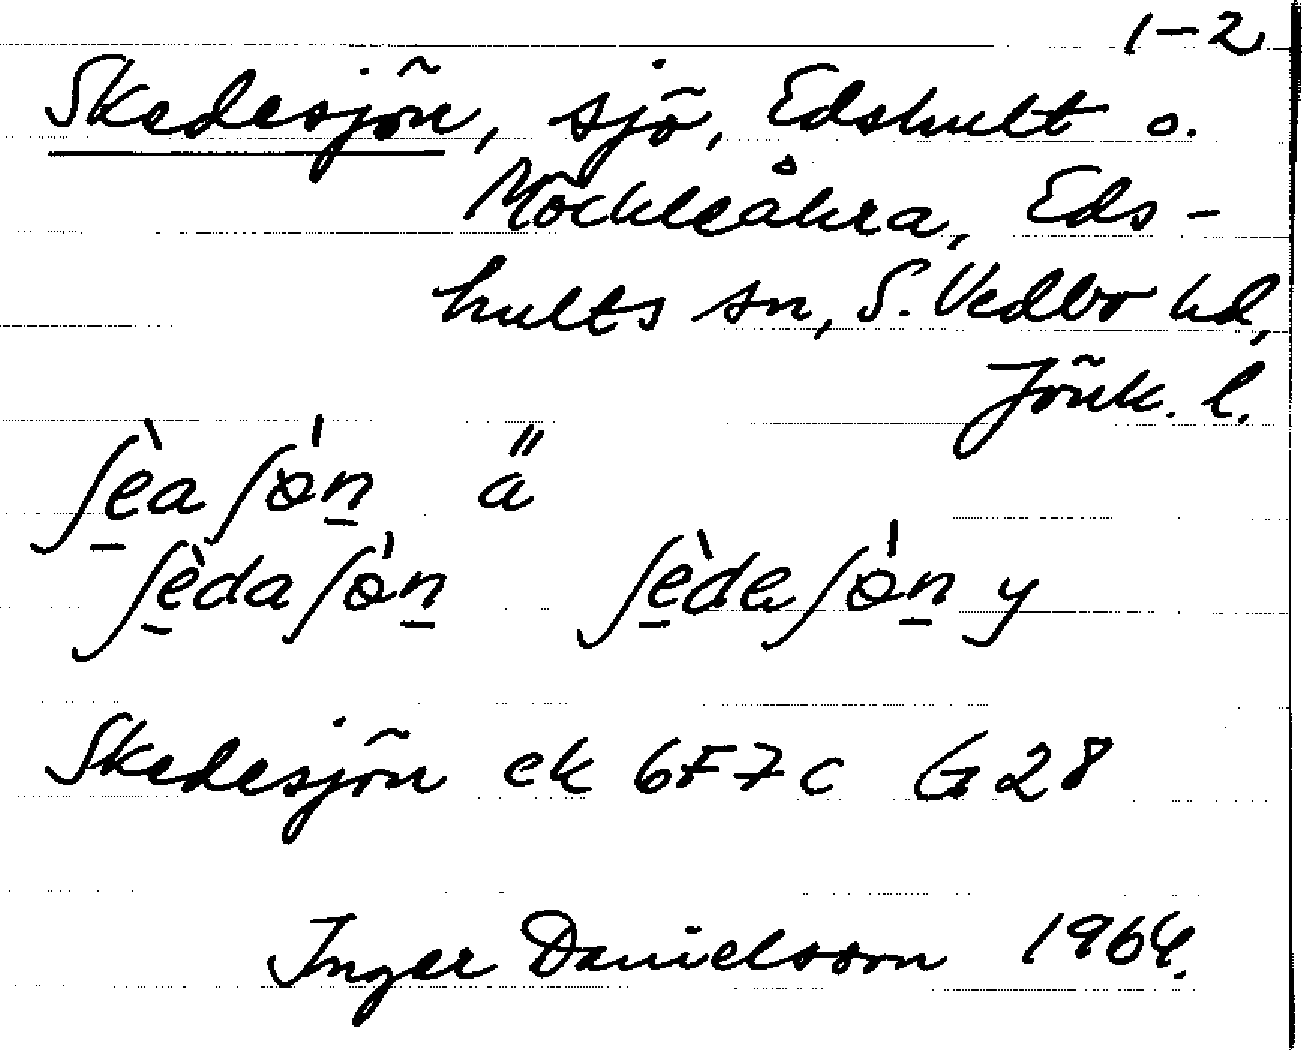 1-2
Skedesjön, sjö, Edshult o.
Möckleåkra, Eds-
hults sn, S. Vedbo hd,
Jönk. l.
ʃè̠aʃø̀n̠ ä̋
ʃè̠daʃø̀n̠ ʃè̠deʃø̀n̠ y
Skedesjön ek 6F7c G28
Inger Danielsson 1964.